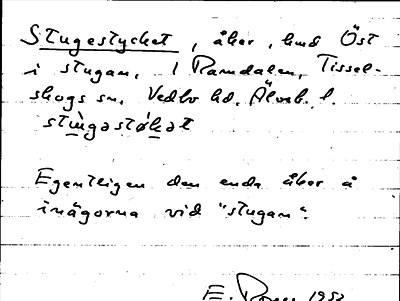 Stugestycket, åker, hmd Öst
i stugan, i Ramdalen, Tissel-
skogs sn. Vedbo hd. Älvsb. l.
stùgəstøkət
Egentligen den enda åker å
inägorna vid "stugan".
E. 1952